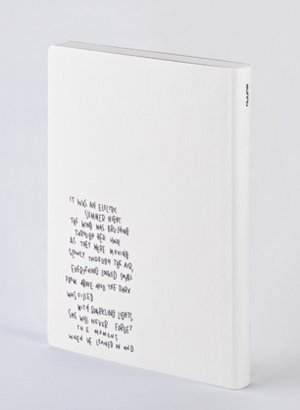 IT WAS AN ELECTRIC
SUMMER NIGHT
THE WIND WAS BRUSHING
THROUGH HER HAIR
AS THEY WERE MOVING
SLOWLY THROUGH THE AIR,
EVERYTHING LOOKED SMALL
FROM ABOVE AND THE DARK
WAS FILLED
WITH SPARKLING LIGHTS,
SHE WILL NEVER FORGET
THE MOMENT,
WHEN HE LEANED IN AND
nuuna